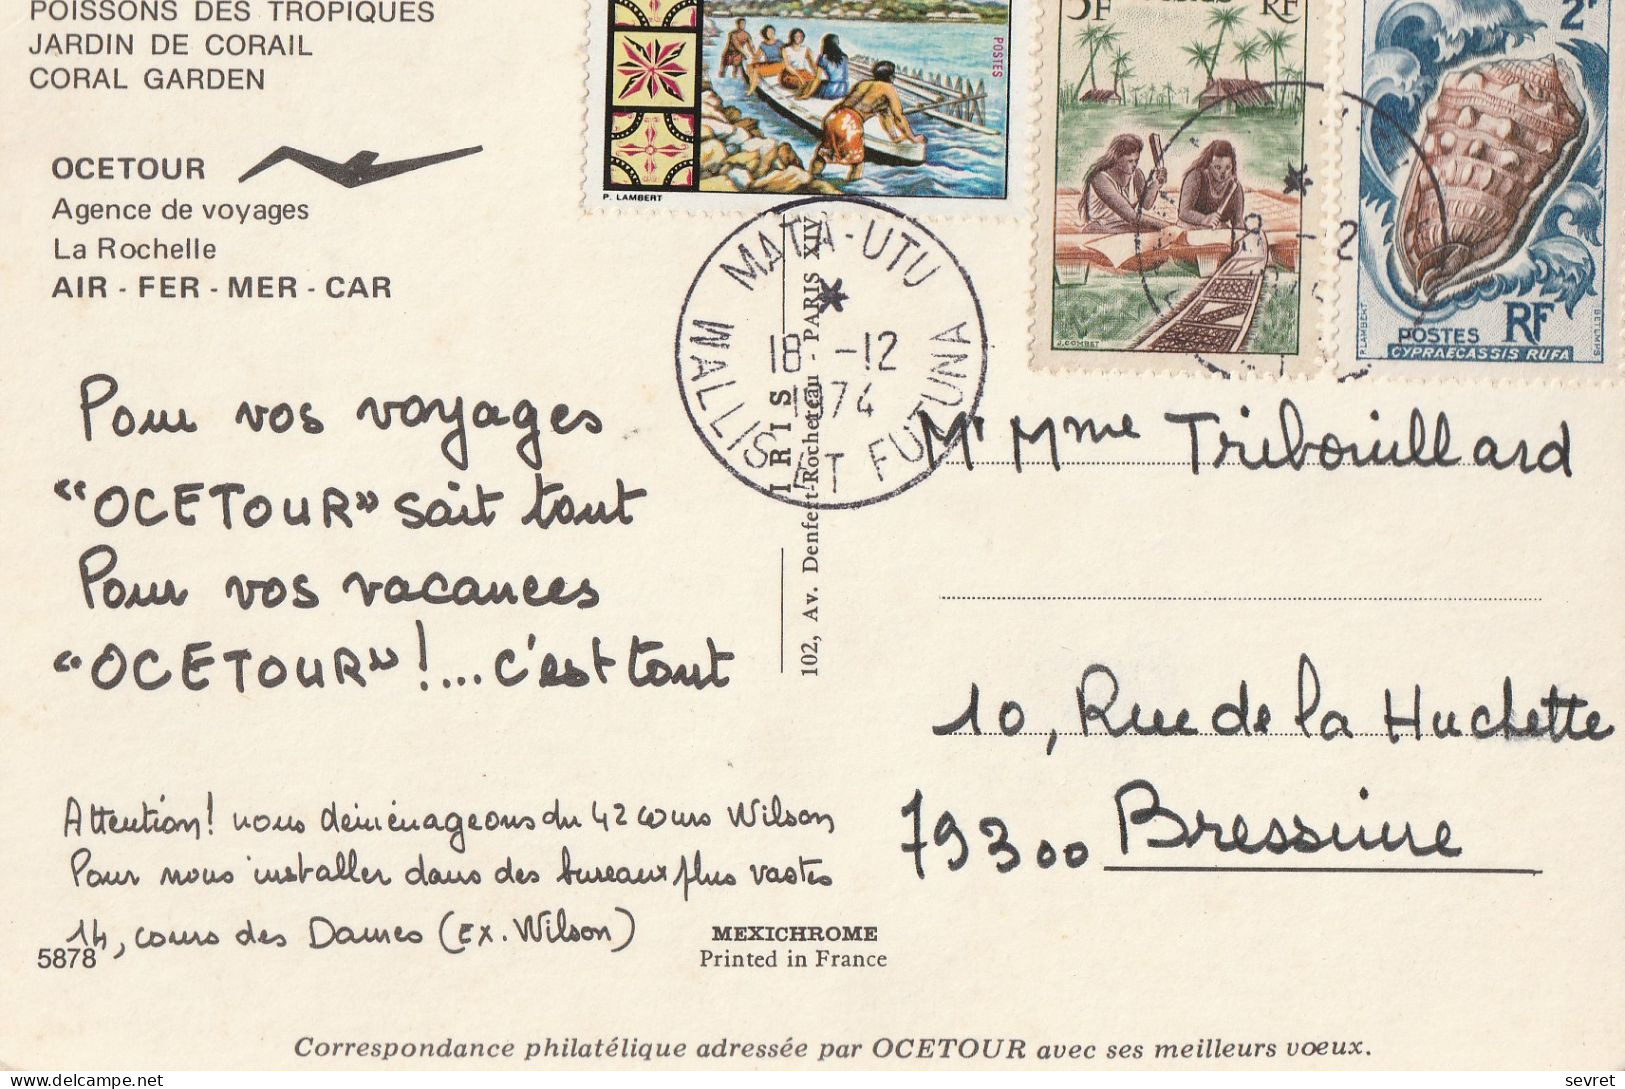 POISSONS DES TROPIQUES
JARDIN DE CORAIL
CORAL GARDEN
OCETOUR
Agence de voyages
La Rochelle
AIR - FER - MER - CAR
POSTES
P. LAMBERT
5F
RF
J. COMBET
2F
POSTES RF
CYPRAECASSIS RUFA
P. LAMBERT
BETEMPS
MATA-UTU
18 -12
1974
WALLIS ET FUTUNA
IRIS
102, Av. Denfert-Rochereau - PARIS XIV
Pour vos voyages
"OCETOUR" sait tout
Pour vos vacances
"OCETOUR"!... c'est tout
Attention! nous déménageons du 42 cours Wilson
Pour nous installer dans des bureaux plus vastes
14, cours des Dames (Ex. Wilson)
5878
Mr Mme Tribouillard
10, Rue de la Huchette
79300 Bressuire
MEXICHROME
Printed in France
Correspondance philatélique adressée par OCETOUR avec ses meilleurs voeux.
delcampe.net
sevret